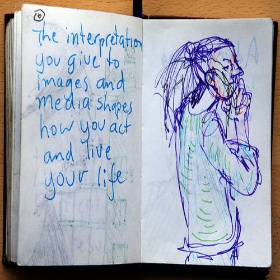 10
The interpretation
you give to
images and
media shapes
how you act
and live
your life